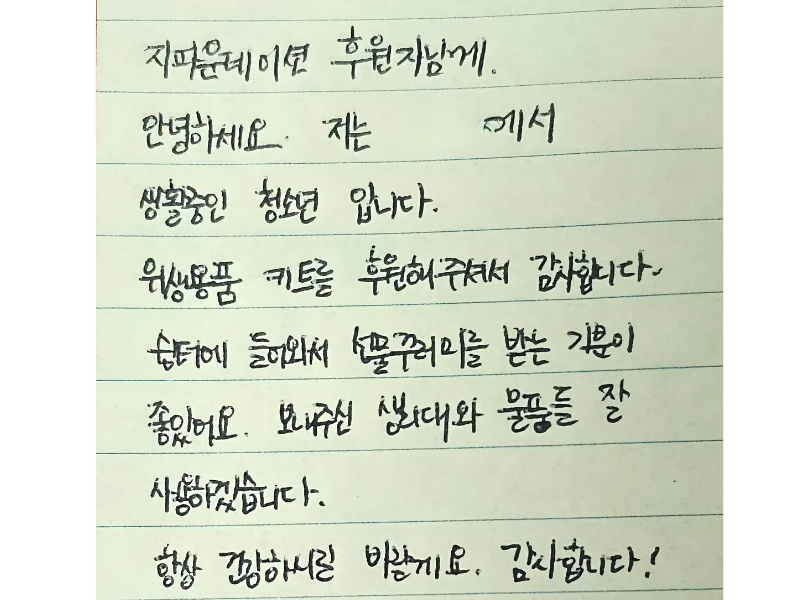 지파운데이션 후원자님께.
안녕하세요. 저는 에서
생활중인 청소년 입니다.
위생용품 키트를 후원해주셔서 감사합니다.
쉼터에 들어와서 선물꾸러미를 받는 기분이
좋았어요. 보내주신 생리대와 물품들 잘
사용하겠습니다.
항상 건강하시길 바랄게요. 감사합니다!